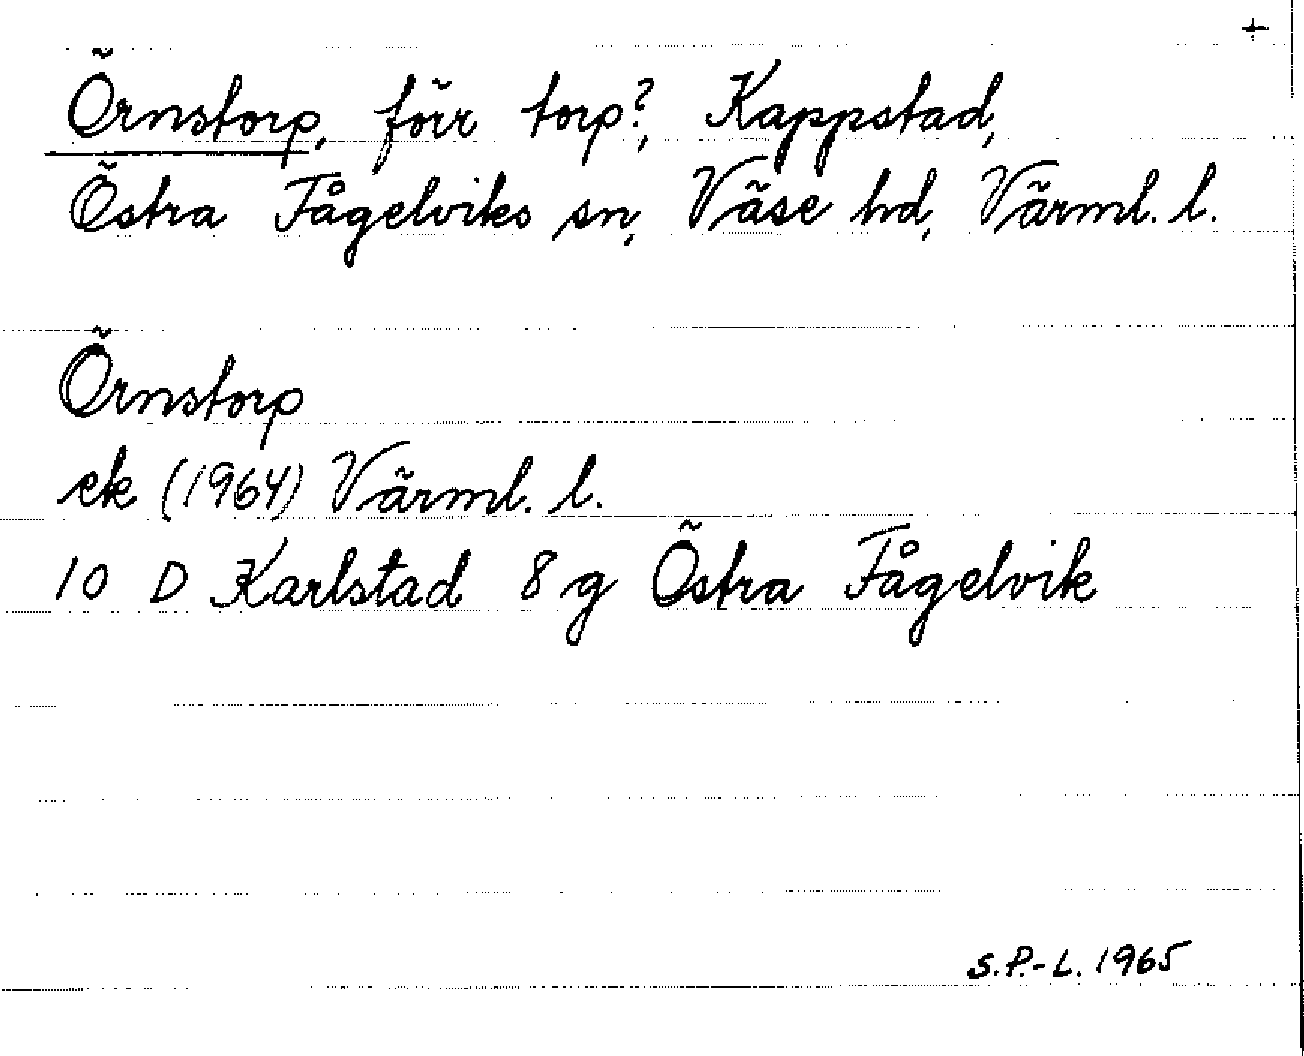 +
Örnstorp, förr torp?, Kappstad,
Östra Fågelviks sn, Väse hd, Värml. l.
Örnstorp
ek (1964) Värml. l.
10 D Karlstad 8 g Östra Fågelvik
S.P.-L. 1965